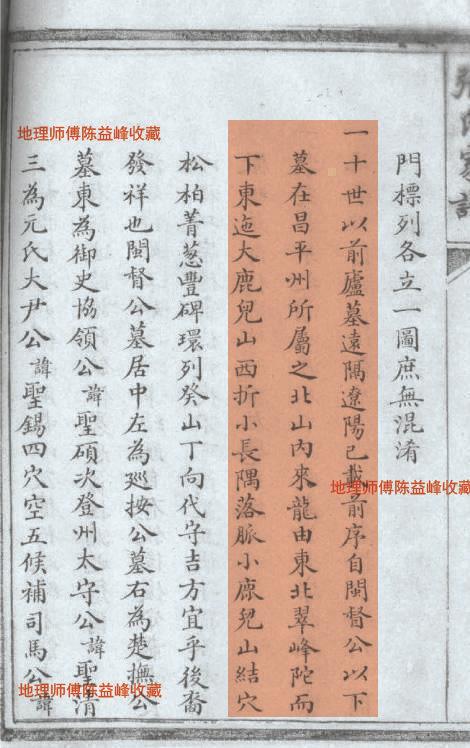 門標列各立一圖庶無混淆
一十世以前廬墓遠隔遼陽已載前序自閩督公以下
墓在昌平州所屬之北山內來龍由東北翠峰陀而
下東迤大鹿兒山西折小長隅落脈小鹿兒山結穴
松柏菁葱豐碑環列癸山丁向代守吉方宜乎後裔
發祥也閩督公墓居中左為廵按公墓右為楚撫公
墓東為御史協領公諱聖碩次登州太守公諱聖清
三為元氏大尹公諱聖錫四穴空五候補司馬公諱
地理师傅陈益峰收藏
地理师傅陈益峰收藏
地理师傅陈益峰收藏